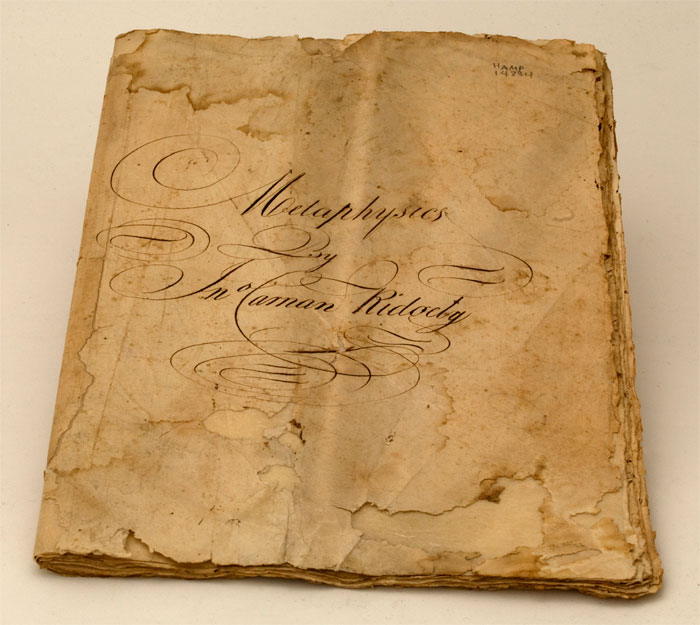 HAMP
Metaphysics
By
Jnº Carnan Ridgely